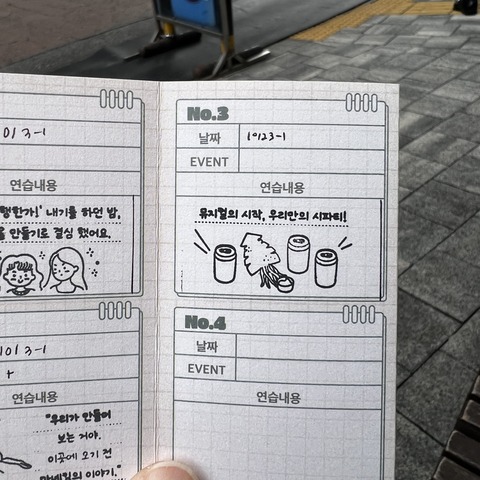 1013-1
연습내용
행한가!' 내기를 하던 밤,
을 만들기로 결심 했어요.
1013-1
+
연습내용
"우리가 만들어
보는 거야.
이곳에 오기 전
마녀들의 이야기."
No.3
날짜 10123-1
EVENT
연습내용
뮤지컬의 시작, 우리만의 시파티!
No.4
날짜
EVENT
연습내용